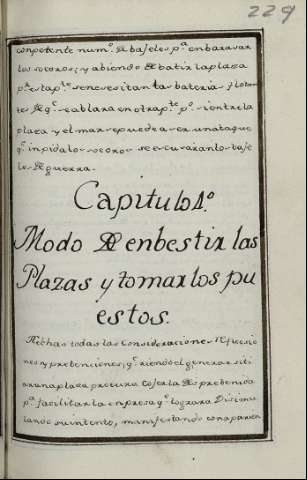 229
conpetente num.º de bajeles p.ª enbarasar
los socoros; y abiendo de batir la plaza
p.r esta p.te se nesesitan tas bateria
te de q.e se ablara en otra p.te p.º i entre la
plaza y el mar se puede aser un ataque
q.e inpida los socoros se escusaran los baje
les de guerra.
Capitulo 1.º
Modo de enbestir las
Plazas y tomar los pu
estos.
Hechas todas las consideraciones reflecsio
nes y prebenciones, q.e riendo el general siti
ar una plaza procura cojer la des prebenida
p.ª facilitar la enpresa q.e lograra Discimu
lando su intento, manifestando con aparen